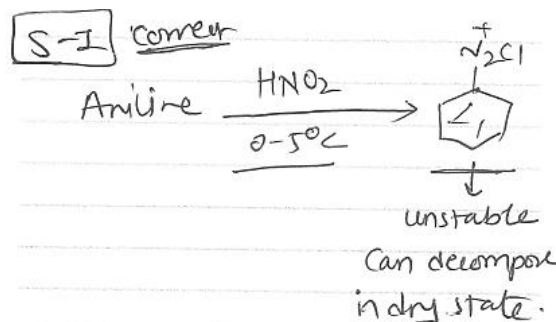 S-I correct
N₂Cl⁺
Aniline HNO2
0-5°C
unstable
Can decompose
in dry state.